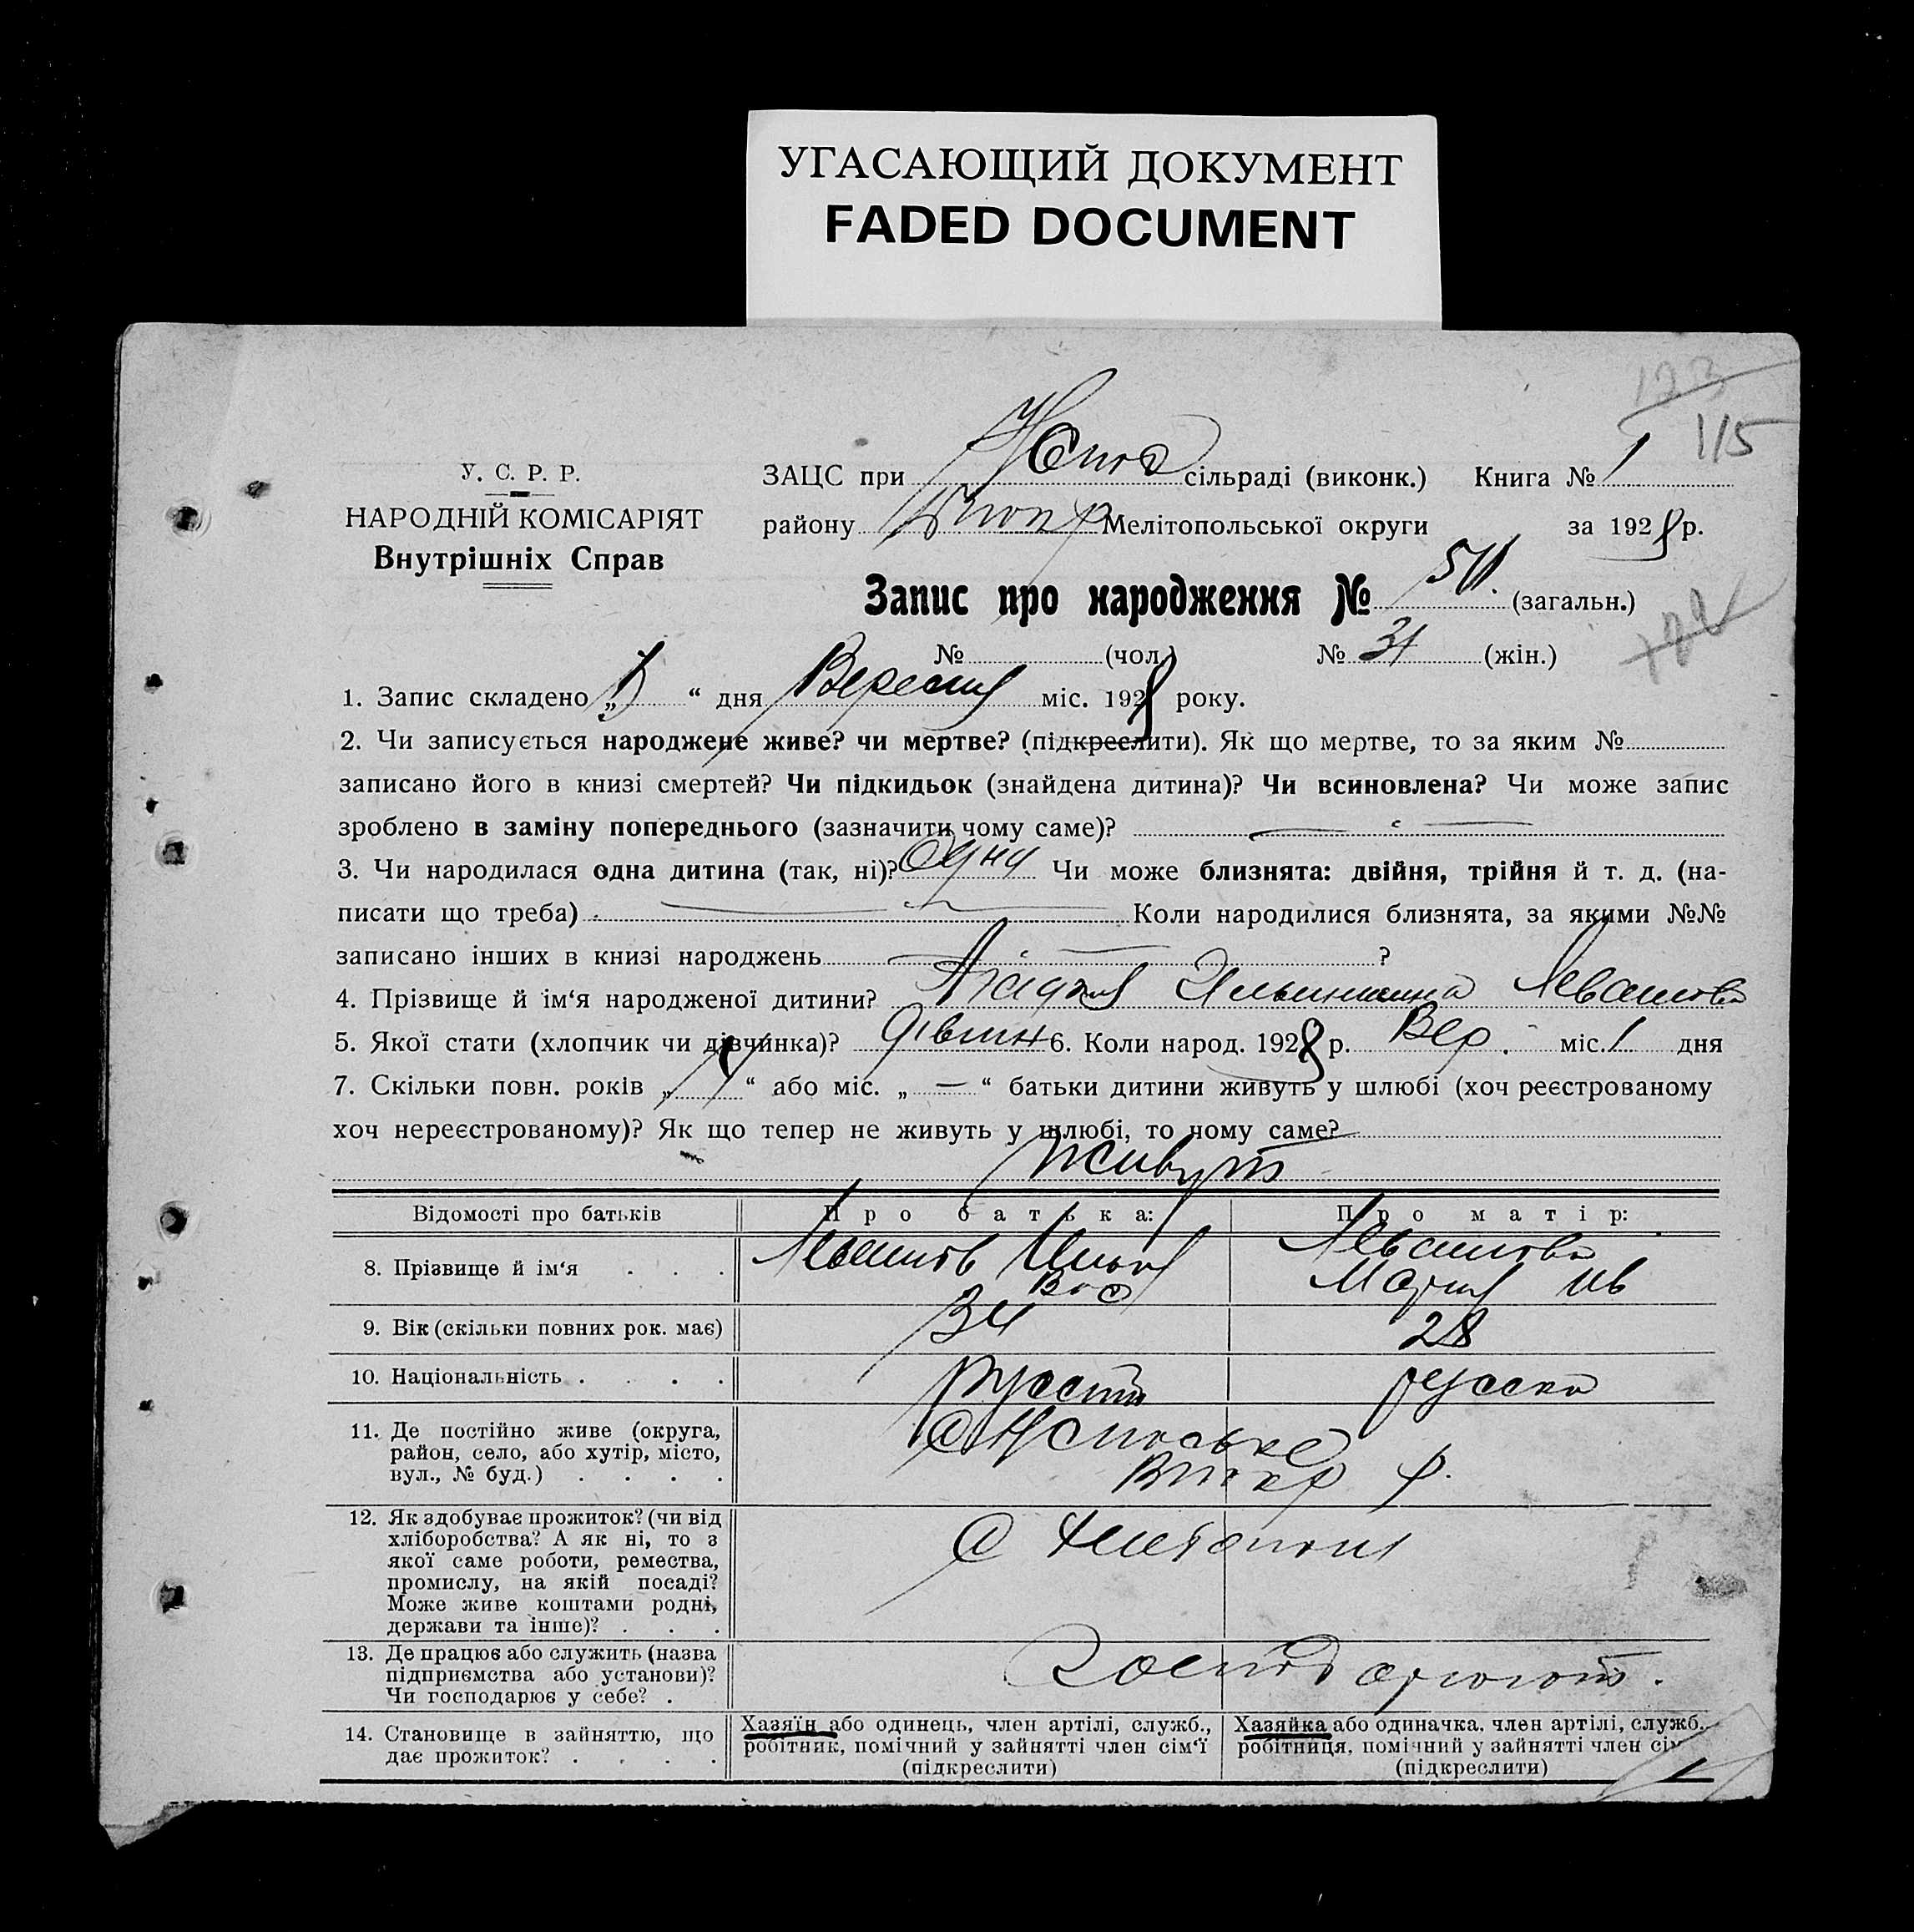 УГАСАЮЩИЙ ДОКУМЕНТ
FADED DOCUMENT
123
115
У. С. Р. Р.
НАРОДНІЙ КОМІСАРІЯТ
Внутрішніх Справ
ЗАЦС при сільраді (виконк.) Книга № 1
району Мелітопольської округи за 1928 р.
Запис про народження № (загальн.)
№ (чол.) № 31 (жін.)
1. Запис складено „ “ дня Вересня міс. 1928 року.
2. Чи записується народжене живе? чи мертве? (підкреслити). Як що мертве, то за яким №
записано його в книзі смертей? Чи підкидьок (знайдена дитина)? Чи всиновлена? Чи може запис
зроблено в заміну попереднього (зазначити чому саме)? —
3. Чи народилася одна дитина (так, ні)? Одну Чи може близнята: двійня, трійня й т. д. (на-
писати що треба) — Коли народилися близнята, за якими №№
записано інших в книзі народжень — ?
4. Прізвище й ім‘я народженої дитини? Левашова
5. Якої стати (хлопчик чи дівчинка)? 6. Коли народ. 1928 р. Вер. міс. 1 дня
7. Скільки повн. років „ “ або міс. „ — “ батьки дитини живуть у шлюбі (хоч реєстрованому
хоч нереєстрованому)? Як що тепер не живуть у шлюбі, то чому саме?
Живут
Відомості про батьків Про батька: Про матір:
8. Прізвище й ім‘я . . . Левашов Илья Вас Левашова Мария Ив
9. Вік (скільки повних рок. має) 34 28
10. Національність . . . . русский русска
11. Де постійно живе (округа,
район, село, або хутір, місто,
вул., № буд.) . . . . р.
12. Як здобуває прожиток? (чи від
хліборобства? А як ні, то з
якої саме роботи, ремества,
промислу, на якій посаді?
Може живе коштами родні,
держави та інше)? . . .
13. Де працює або служить (назва
підприємства або установи)?
Чи господарює у себе? .
14. Становище в зайняттю, що
дає прожиток? . . . .
Хазяїн або одинець, член артілі, служб.,
робітник, помічний у зайнятті член сім‘ї
(підкреслити)
Хазяйка або одиначка, член артілі, служб.
робітниця, помічний у зайнятті член сім
(підкреслити)